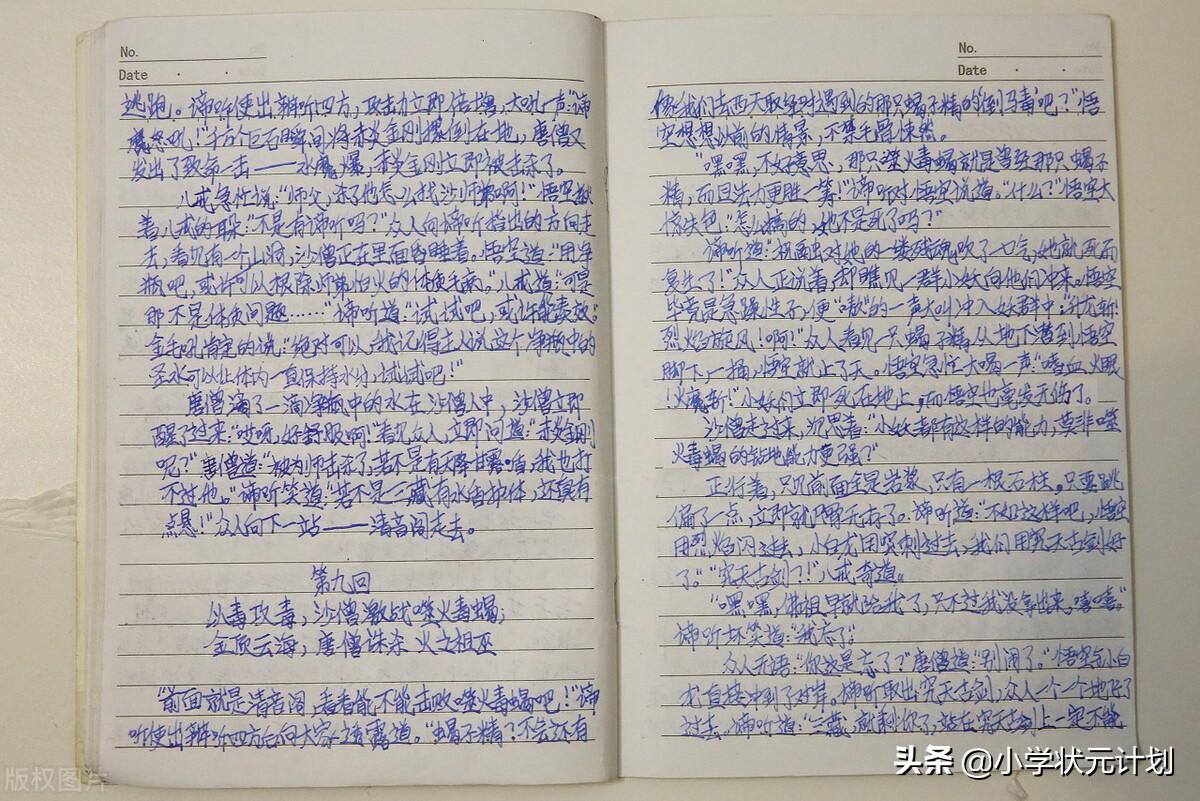 No.
Date
逃跑。谛听使出辨听四方,攻击力立即倍增,大吼一声:“谛
听怒吼!”千万个巨石瞬间将赤炎金刚撂倒在地,唐僧又
发出了致命一击——水魔爆,赤炎金刚立即被击杀了。
八戒急忙说:“师父,杀了他怎么找沙师弟啊!”悟空揪
着八戒的耳朵:“不是有谛听吗?”众人向谛听指出的方向走
去,看见有一个山洞,沙僧正在里面昏睡着。悟空道:“用净
瓶吧,或许可以根除师弟怕火的体质毛病。”八戒道:“可是
那不是体质问题……”谛听道:“试试吧,或许能奏效。”
金毛吼肯定的说:“绝对可以,我记得主人说这个净瓶中的
圣水可以让体内一直保持水分,试试吧!”
唐僧滴了一滴净瓶中的水在沙僧人中,沙僧立即
醒了过来:“哎呀,好舒服啊!”看见众人,立即问道:“赤炎金刚
呢?”唐僧道:“被为师击杀了,若不是有天降甘露盾,我也打
不过他。”谛听笑道:“若不是三藏有水的神体,还真有
点悬!”众人向下一站——清音阁走去。
第九回
以毒攻毒,沙僧激战噬火毒蝎;
金顶云海,唐僧诛杀火之祖巫
“前面就是清音阁,看看能不能击败噬火毒蝎吧!”谛
听使出辨听四方后向大家透露道。“蝎子精?不会还有
No.
Date
像我们去西天取经时遇到的那只蝎子精的倒马毒吧?”悟
空想想以前的情景,不禁毛骨悚然。
“嘿嘿,不好意思,那只噬火毒蝎就是曾经那只蝎子
精,而且法力更胜一筹!”谛听对悟空说道。“什么?”悟空大
惊失色,“怎么搞的,她不是死了吗?”
谛听道:“祖巫对他的一缕残魂吹了一口气,她就死而
复生了!”众人正说着,却瞧见一群小妖向他们冲来。悟空
毕竟是急躁性子,便“嗷”的一声大叫冲入妖群中:“升龙斩!
烈焰旋风!啊!”众人看见一只蝎子精从地下遁到悟空
脚下,一捅,悟空就上了天。悟空急忙大喝一声:“嗜血火眼
!火魔斩!”小妖们立即死在地上,而悟空也毫发无伤了。
沙僧走过来,沉思着:“小妖都有这样的能力,莫非噬
火毒蝎的钻地能力更强?”
正行着,只见前面全是岩浆,只有一根石柱。只要跳
偏了一点,立即就尸骨无存了。谛听道:“不如这样吧,悟空
用烈焰闪过去,小白龙用突刺过去,我们用究天古剑好
了。”“究天古剑?!”八戒奇道。
“嘿嘿,佛祖早就给我了,只不过我没拿出来,嘻嘻。”
谛听坏笑道:“我忘了。”
众人无语:“你这是忘了?”唐僧道:“别闹了。”悟空与小白
龙直接冲到了对岸。谛听取出究天古剑,众人一个一个地飞了
过去。谛听道:“三藏,就剩你了,站在究天古剑上一定不能
版权图片
头条 @小学状元计划